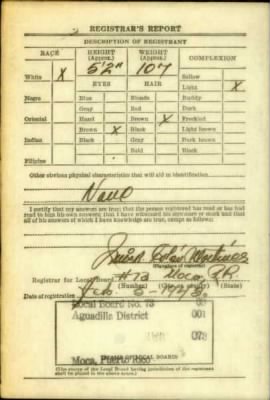 REGISTRAR'S REPORT
DESCRIPTION OF REGISTRANT
RACE HEIGHT (Approx.) WEIGHT (Approx.) COMPLEXION
5'2" 107
White X Sallow
EYES HAIR Light X
Negro Blue Blonde Ruddy
Gray Red Dark
Oriental Hazel Brown Freckled
Brown X Black Light brown
Indian Black Gray Dark brown
Bald Black
Filipino
Other obvious physical characteristics that will aid in identification
None
I certify that my answers are true; that the person registered has read or has had
read to him his own answers; that I have witnessed his signature or mark and that
all of his answers of which I have knowledge are true, except as follows:
(Signature of registrar)
Registrar for Local Board #73 Moca P.R.
(Number) (City or county) (State)
Date of registration
Local Board No. 73 99
Aguadilla District 001
073
Moca, Puerto Rico
(The stamp of the Local Board having jurisdiction of the registrant
shall be placed in the above space.)